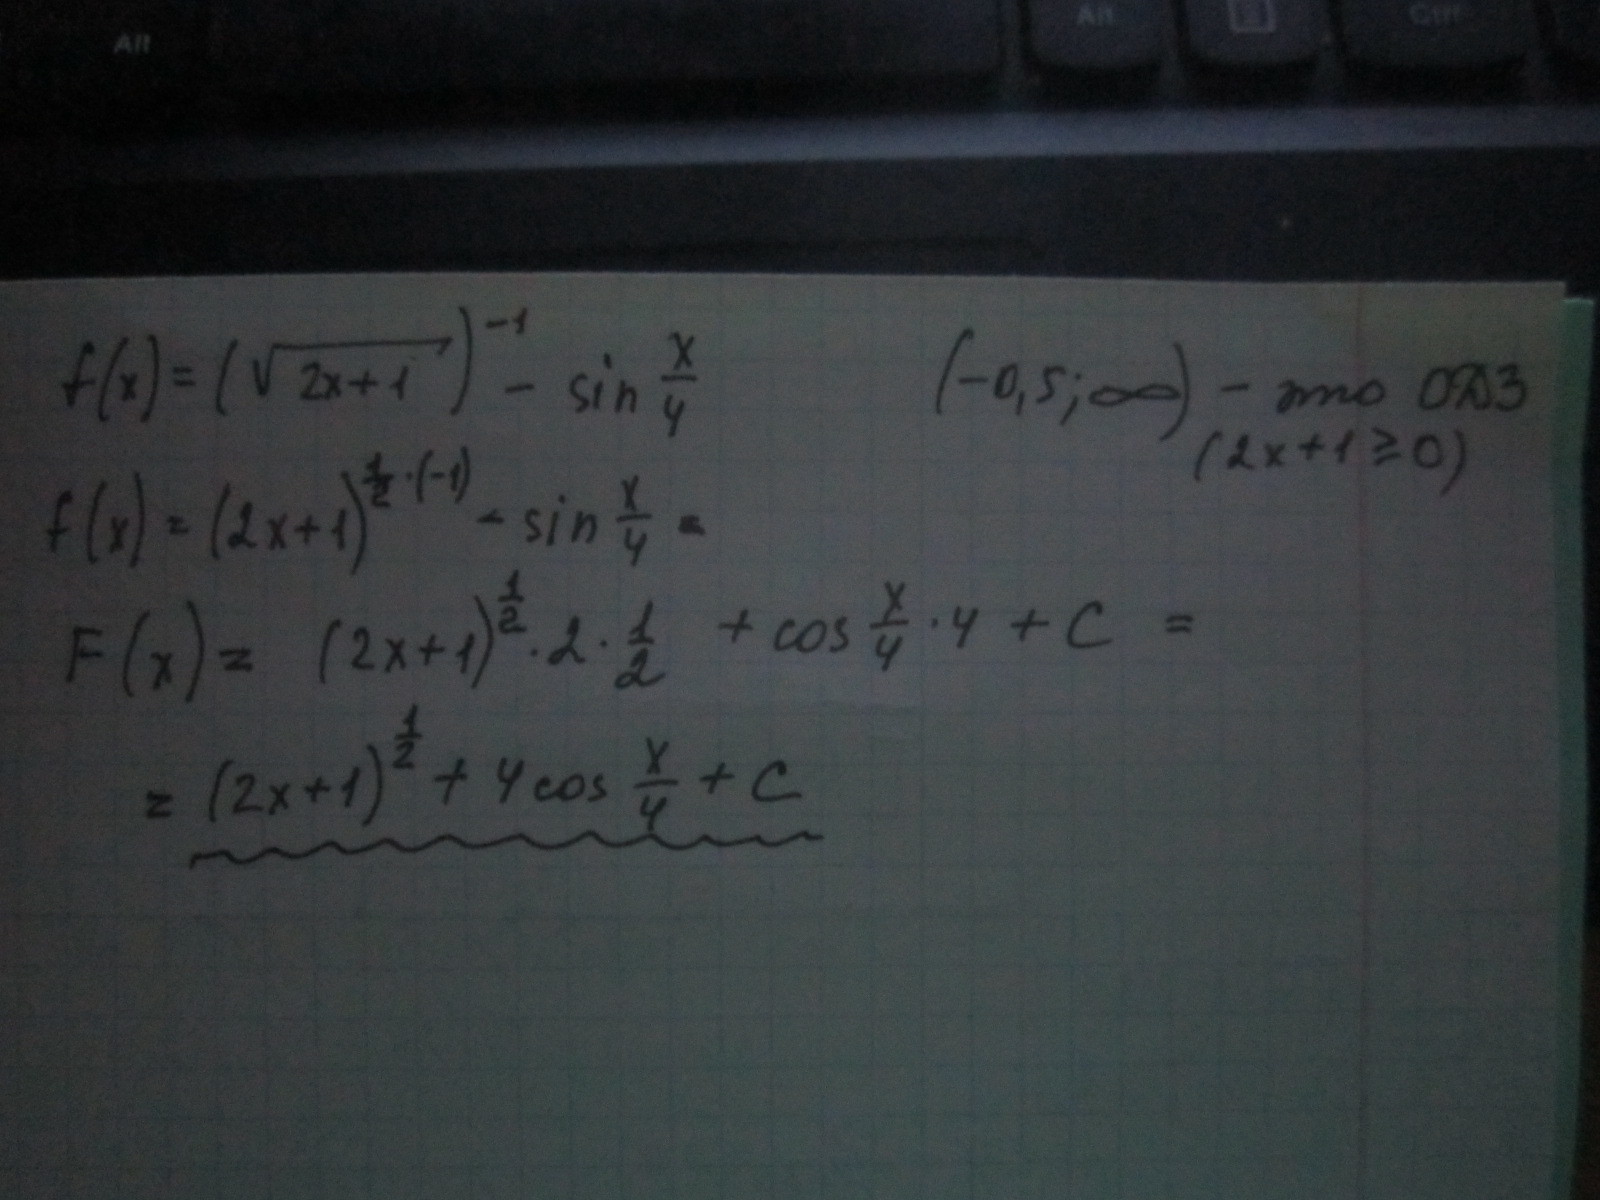 Alt
Alt
Ctrl
f(x) = (√(2x+1))^{-1} - sin x/4
(-0,5; ∞) - это ОДЗ
(2x+1 ≥ 0)
f(x) = (2x+1)^{1/2·(-1)} - sin x/4 =
F(x) = (2x+1)^{1/2} · 2 · 1/2 + cos x/4 · 4 + C =
= (2x+1)^{1/2} + 4 cos x/4 + C